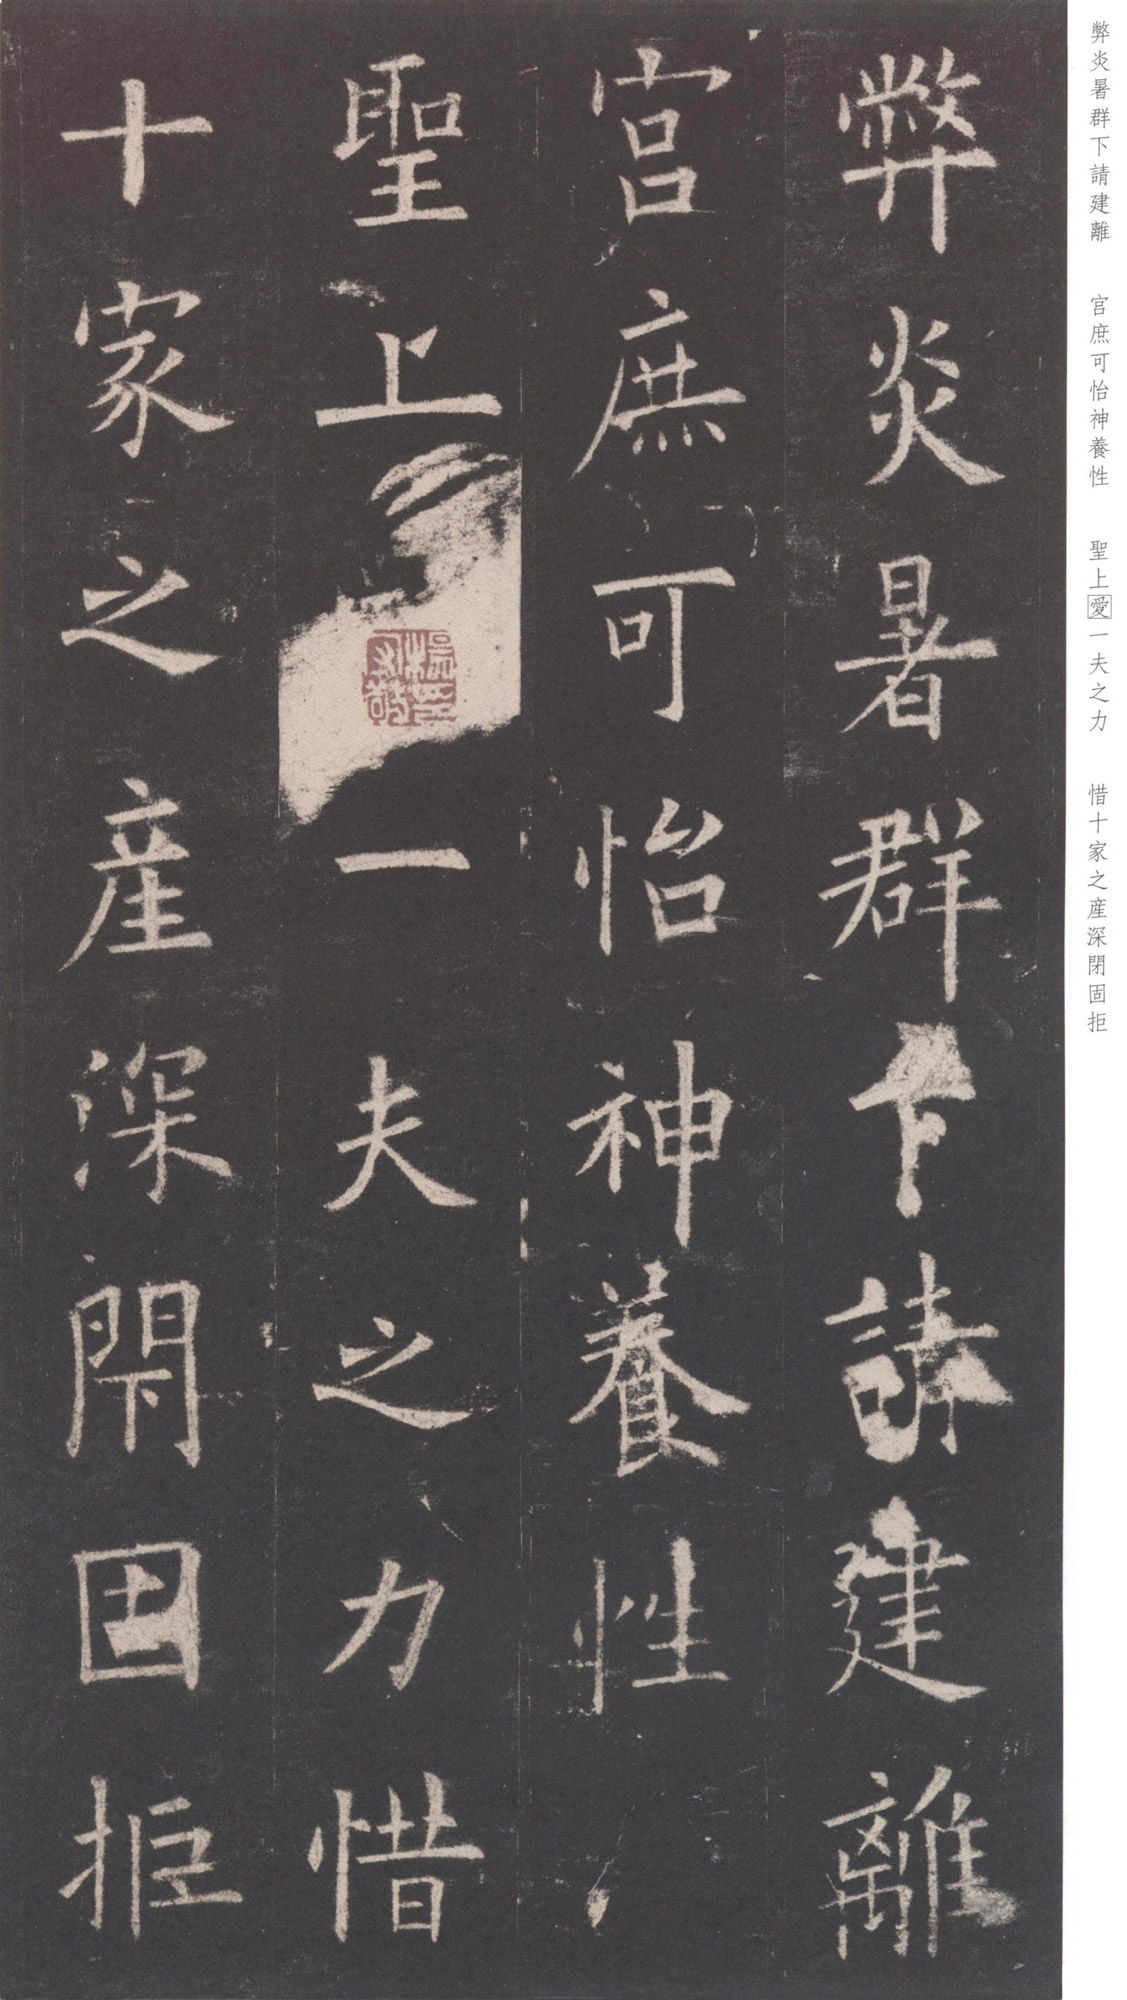 弊炎暑群下請建離
宮庶可怡神養性
聖上一夫之力惜
十家之産深閇固拒
弊炎暑群下請建離　宮庶可怡神養性　聖上愛一夫之力　惜十家之産深閉固拒